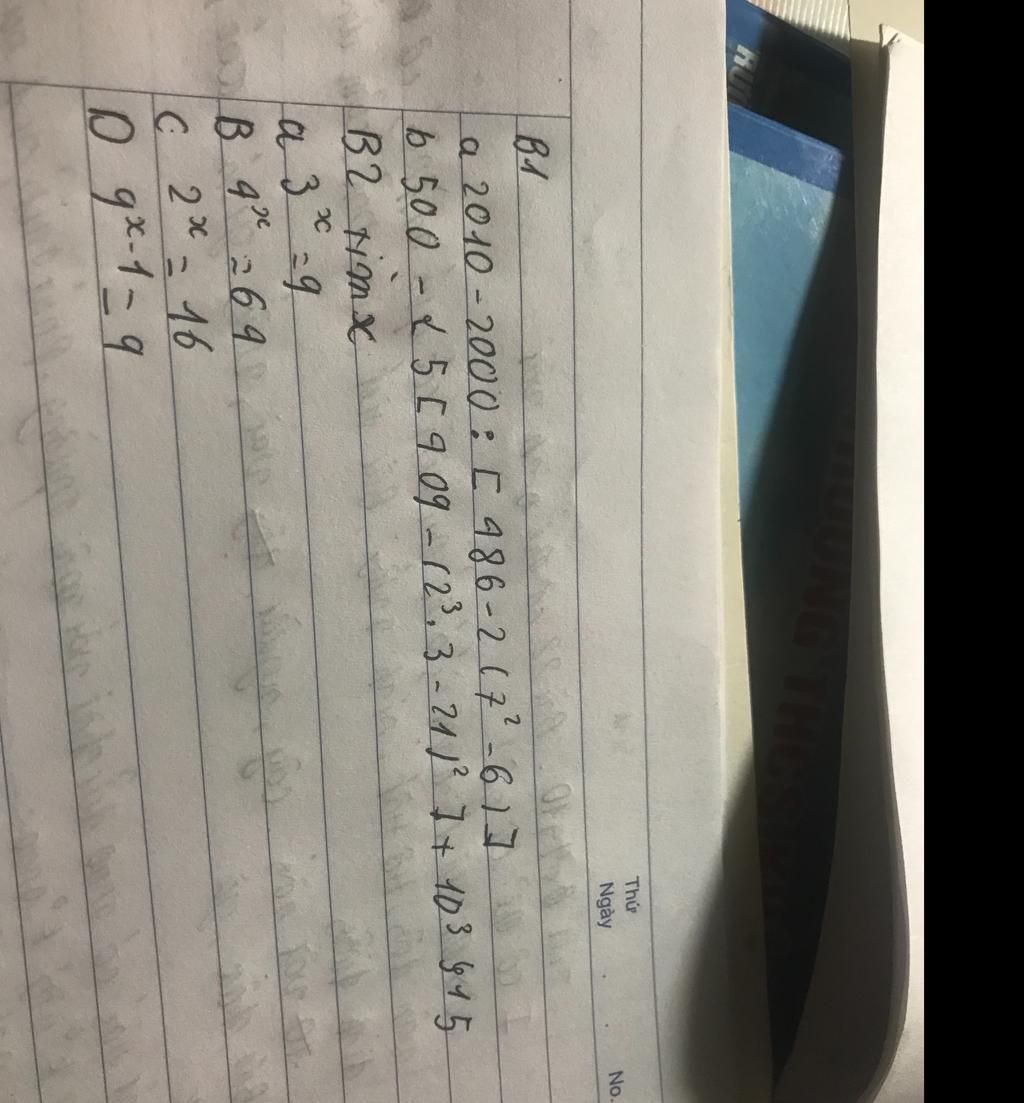 Thứ
Ngày
No.
B1
a 2010 - 2000 : [ 486 - 2 ( 7² - 6 ) ]
b 500 - { 5 [ 409 - ( 2³ . 3 - 21 )² ] + 10³
B2 tìm x
a 3ˣ = 9
B 4ˣ = 64
C 2ˣ = 16
D 9ˣ⁻¹ = 9